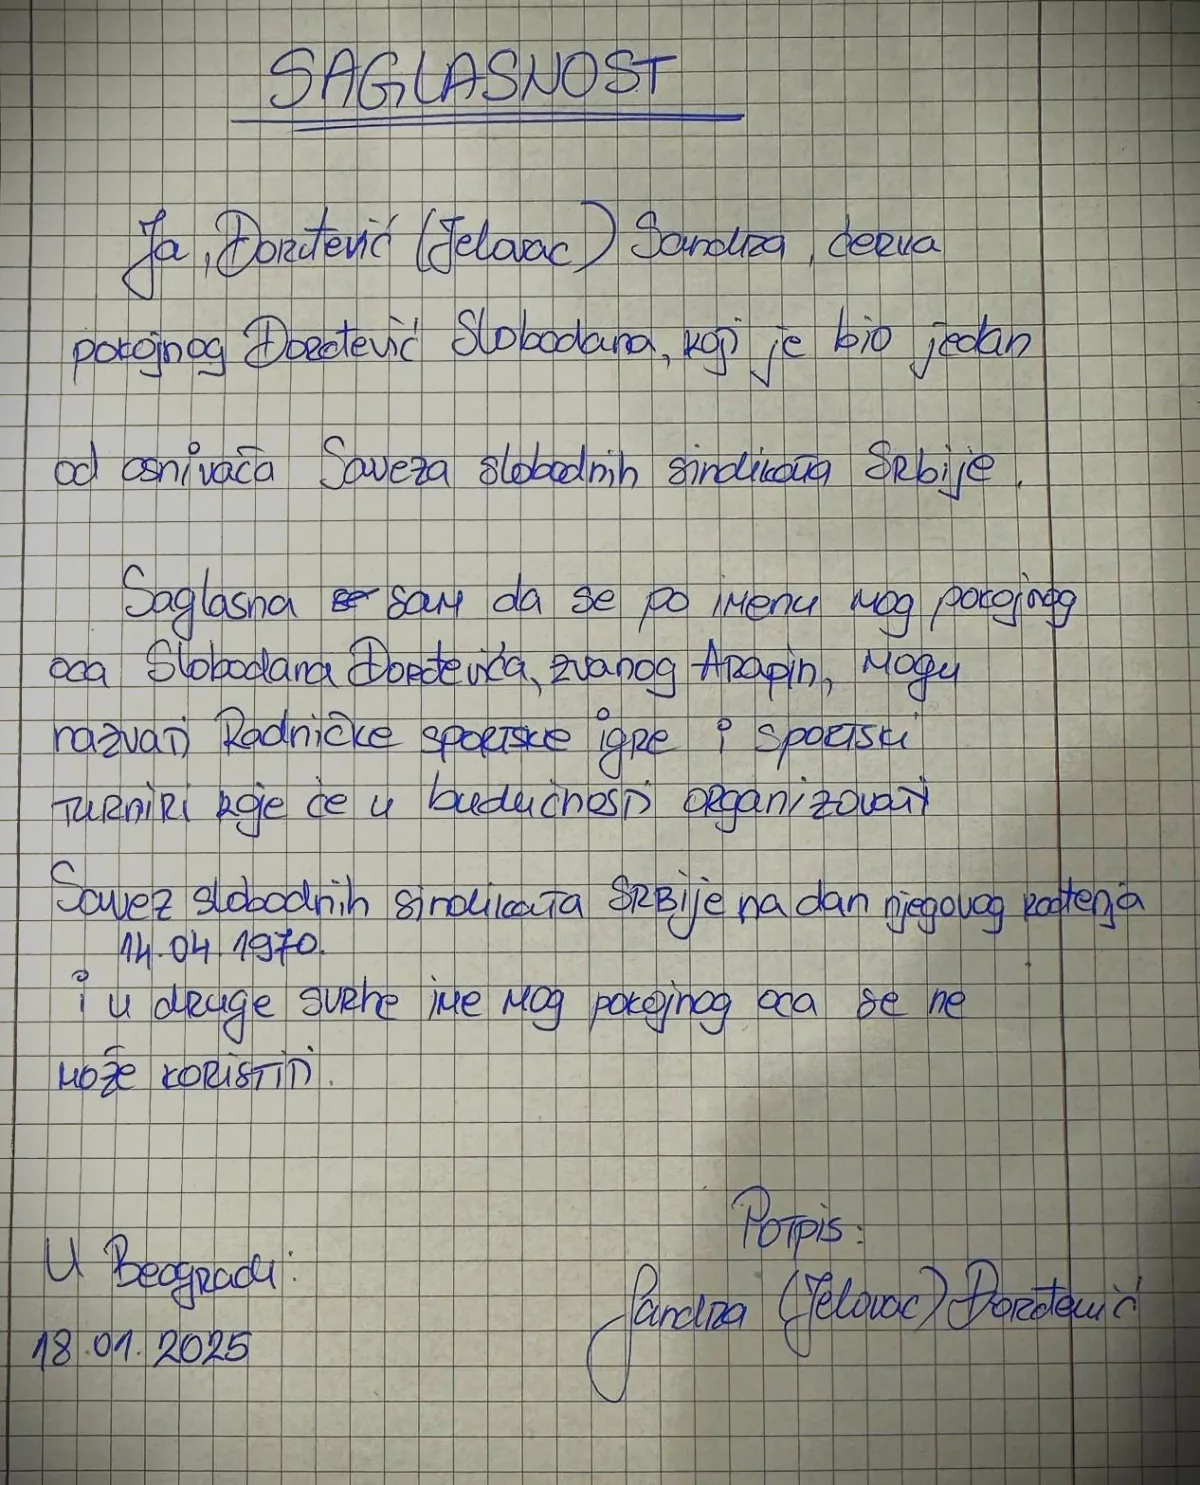 SAGLASNOST
Ja, Đorđević (Jelovac) Sandra, ćerka
pokojnog Đorđević Slobodana, koji je bio jedan
od osnivača Saveza slobodnih sindikata Srbije.
Saglasna sam da se po imenu mog pokojnog
oca Slobodana Đorđevića, zvanog Arapin, mogu
nazvati Radničke sportske igre i sportski
turniri koje će u budućnosti organizovati
Savez slobodnih sindikata Srbije na dan njegovog rođenja
14.04.1970.
i u druge svrhe ime mog pokojnog oca se ne
može koristiti.
U Beogradu:
18.01.2025
Potpis:
Sandra (Jelovac) Đorđević